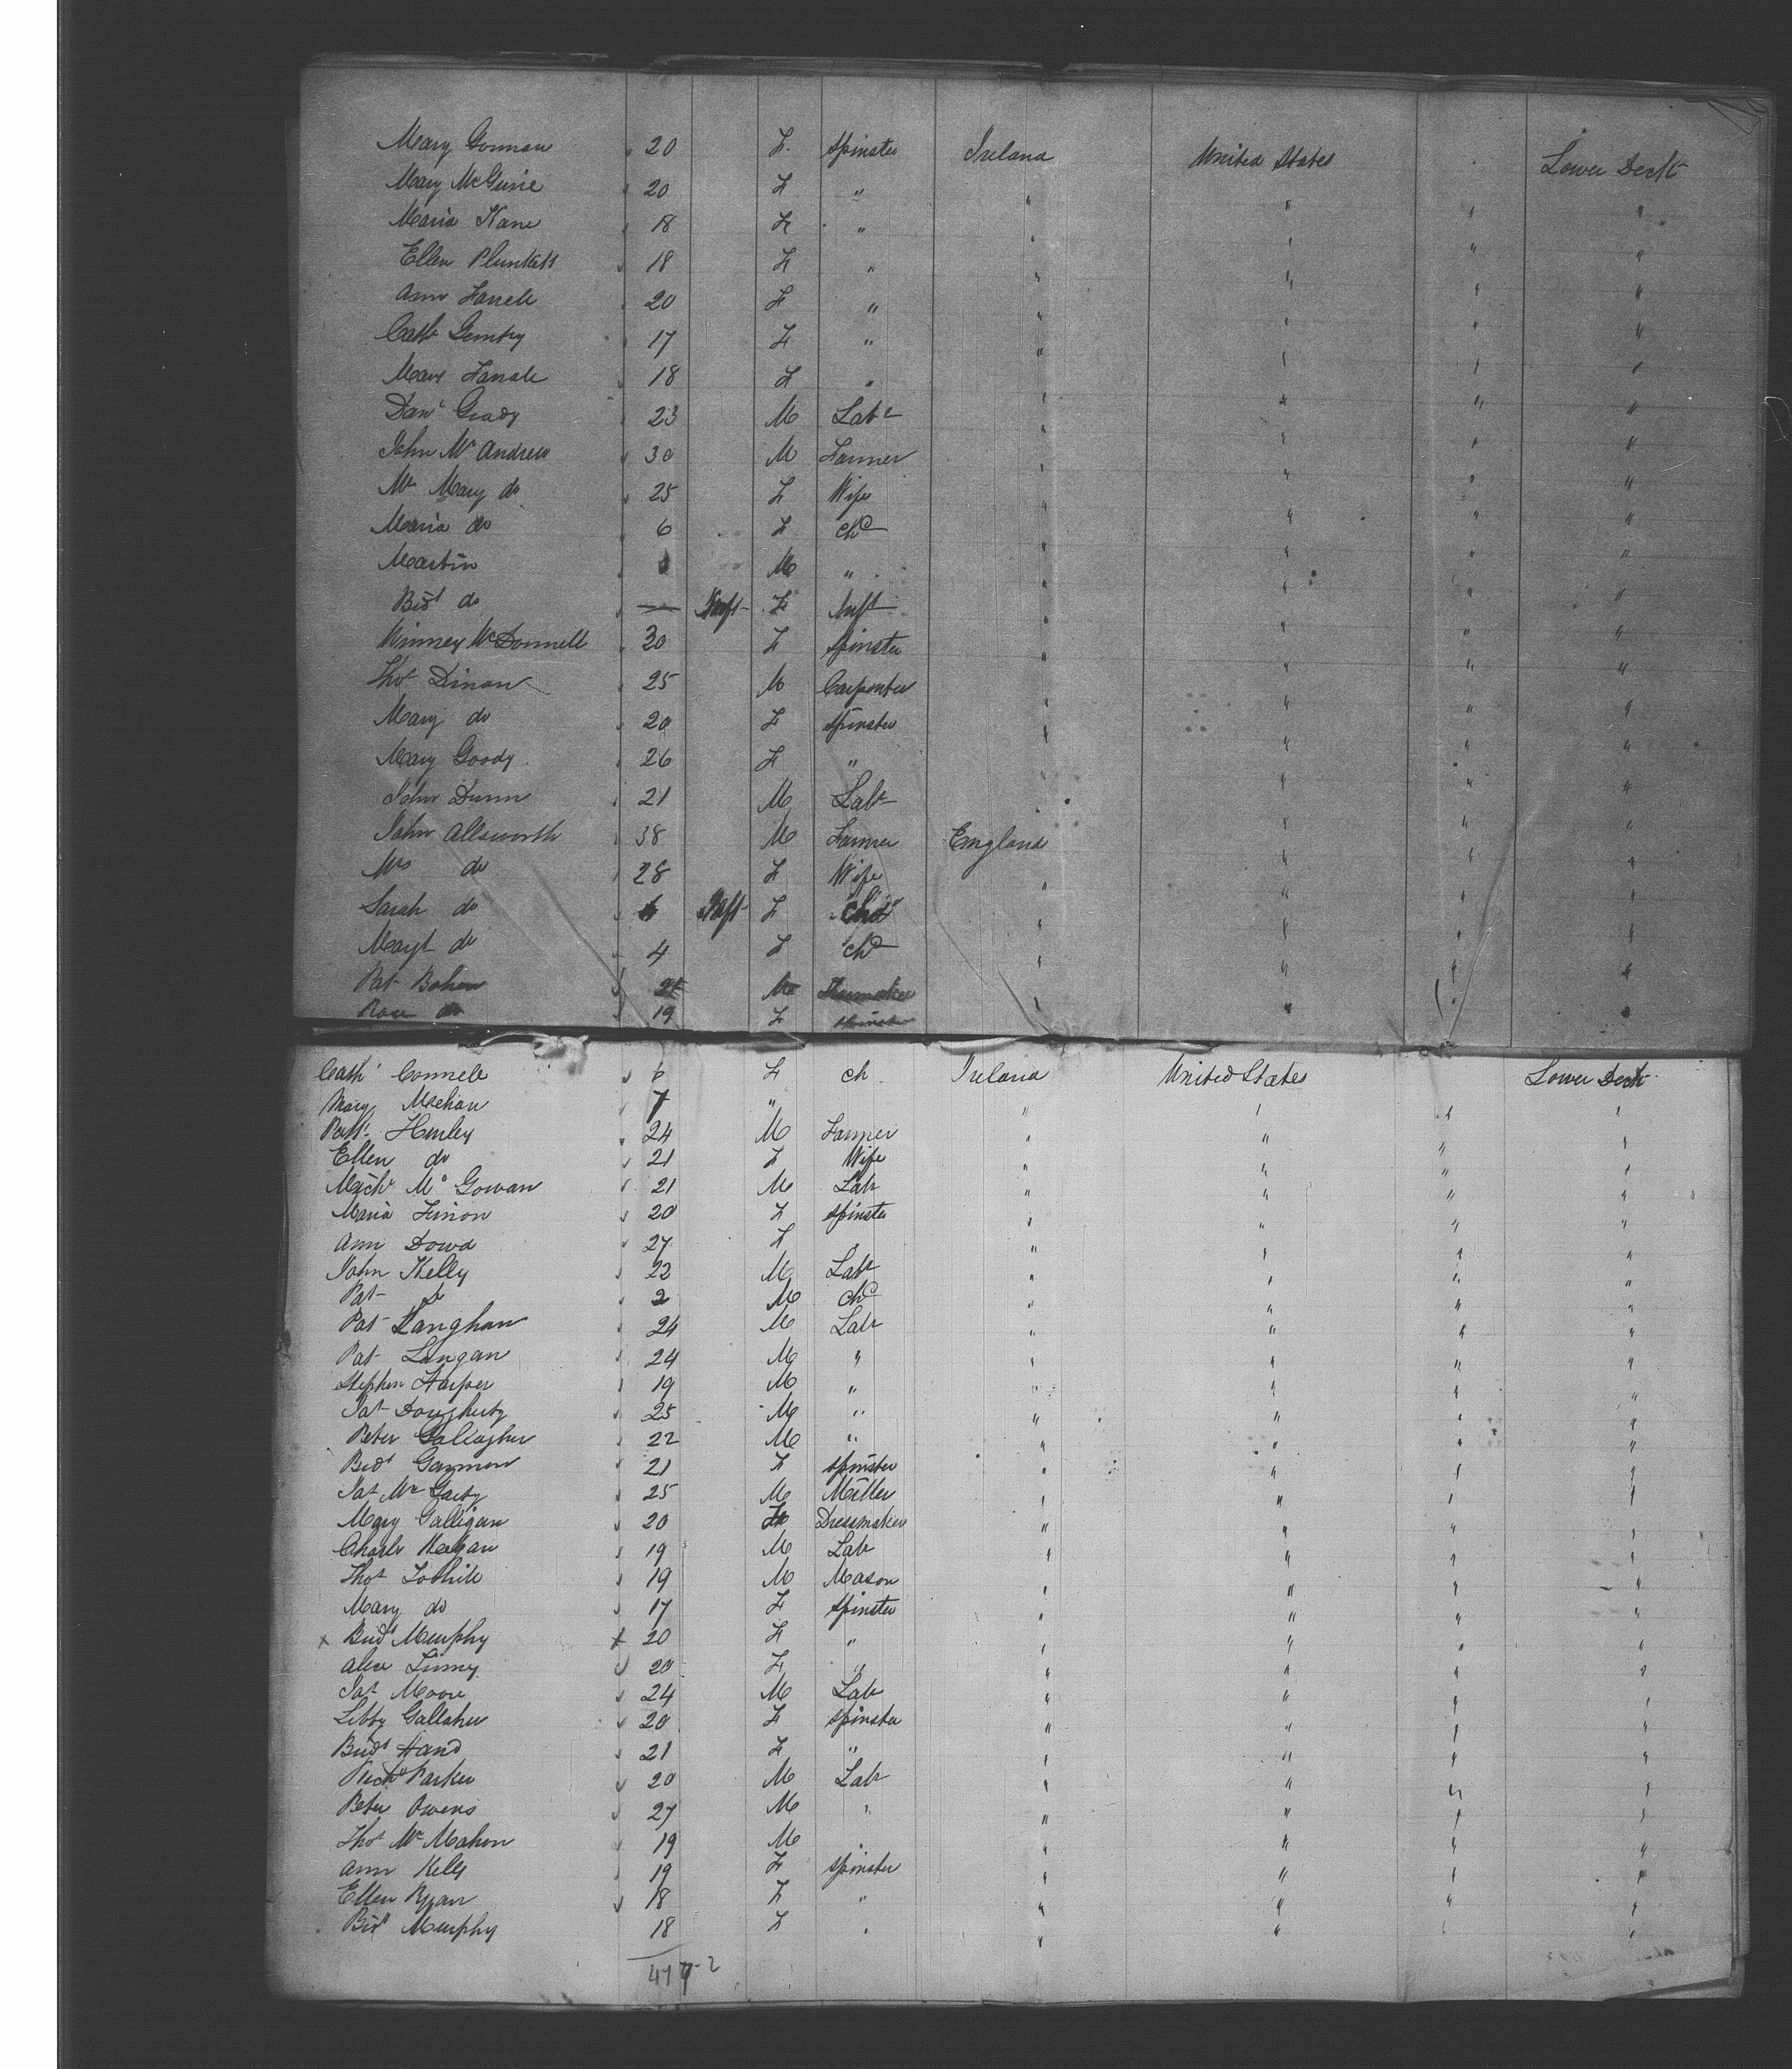 Mary Gorman 20 F. Spinster Ireland United States Lower Deck
Mary McGuire 20 F " " " " "
Maria Kane 18 F " " " " "
Ellen Plunkett 18 F " " " " "
Ann Farrell 20 F " " " " "
Cath 17 F " " " " "
Mary Farrell 18 F " " " " "
Danl Grady 23 M Labr " " " "
John McAndrew 30 M Farmer " " " "
Mrs Mary do 25 F Wife " " " "
Maria do 6 F chd " " " "
Martin M " " " " "
Bidt do Inft F Inft " " " "
Winney McDonnell 30 F Spinster " " " "
Thos Dinan 25 M Carpenter " " " "
Mary do 20 F Spinster " " " "
Mary Goody 26 F " " " " "
John Dunn 21 M Labr " " " "
John Allsworth 38 M Farmer England " " "
Mrs do 28 F Wife " " " "
Sarah do Inft F chd " " " "
Margt do 4 F chd " " " "
Pat Bohan 21 M Shumaker " " " "
Rose do 19 F Spinster " " " "
Cath Connell 6 F ch Ireland United States Lower Deck
Mary Meehan 7 " " " " "
Patt Hurley 24 M Farmer " " " "
Ellen do 21 F Wife " " " "
Michl McGowan 21 M Labr " " " "
Maria Finion 20 F Spinster " " " "
Ann Dowd 27 F " " " " "
John Kelly 22 M Labr " " " "
Pat do 2 M chd " " " "
Pat Langhan 24 M Labr " " " "
Pat Langan 24 M " " " " "
Stephen Harper 19 M " " " " "
Pat Dougherty 25 M " " " " "
Peter Gallagher 22 M " " " " "
Bidt Garmon 21 F Spinster " " " "
Pat McGarty 25 M Miller " " " "
Mary Galligan 20 F Dressmaker " " " "
Charls Keegan 19 M Labr " " " "
Thos 19 M Mason " " " "
Mary do 17 F Spinster " " " "
x Bridt Murphy x 20 F " " " " "
Alice 20 F " " " " "
Pat Moore 24 M Labr " " " "
Libby Gallaher 20 F Spinster " " " "
Bridt Hand 21 F " " " " "
Richd Parker 20 M Labr " " " "
Peter Owens 27 M " " " " "
Thos McMahon 19 M " " " " "
Ann Kelly 19 F Spinster " " " "
Ellen Ryan 18 F " " " " "
Bidt Murphy 18 F " " "